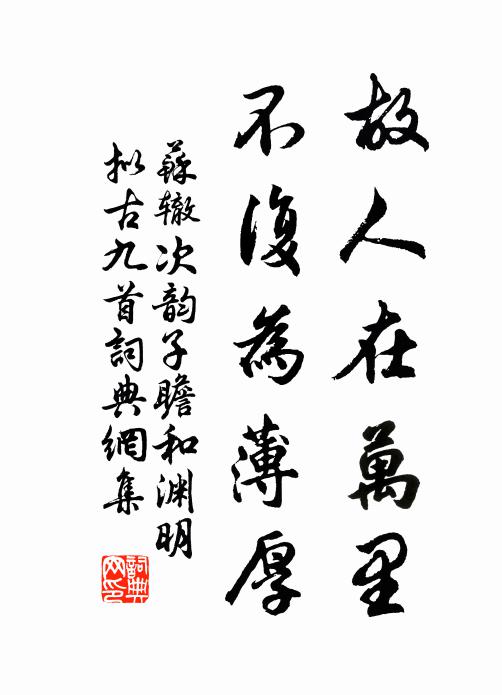 故人在萬里
不復為薄厚
蘇辙次韵子瞻和渊明
拟古九首詞典網集
詞典网印